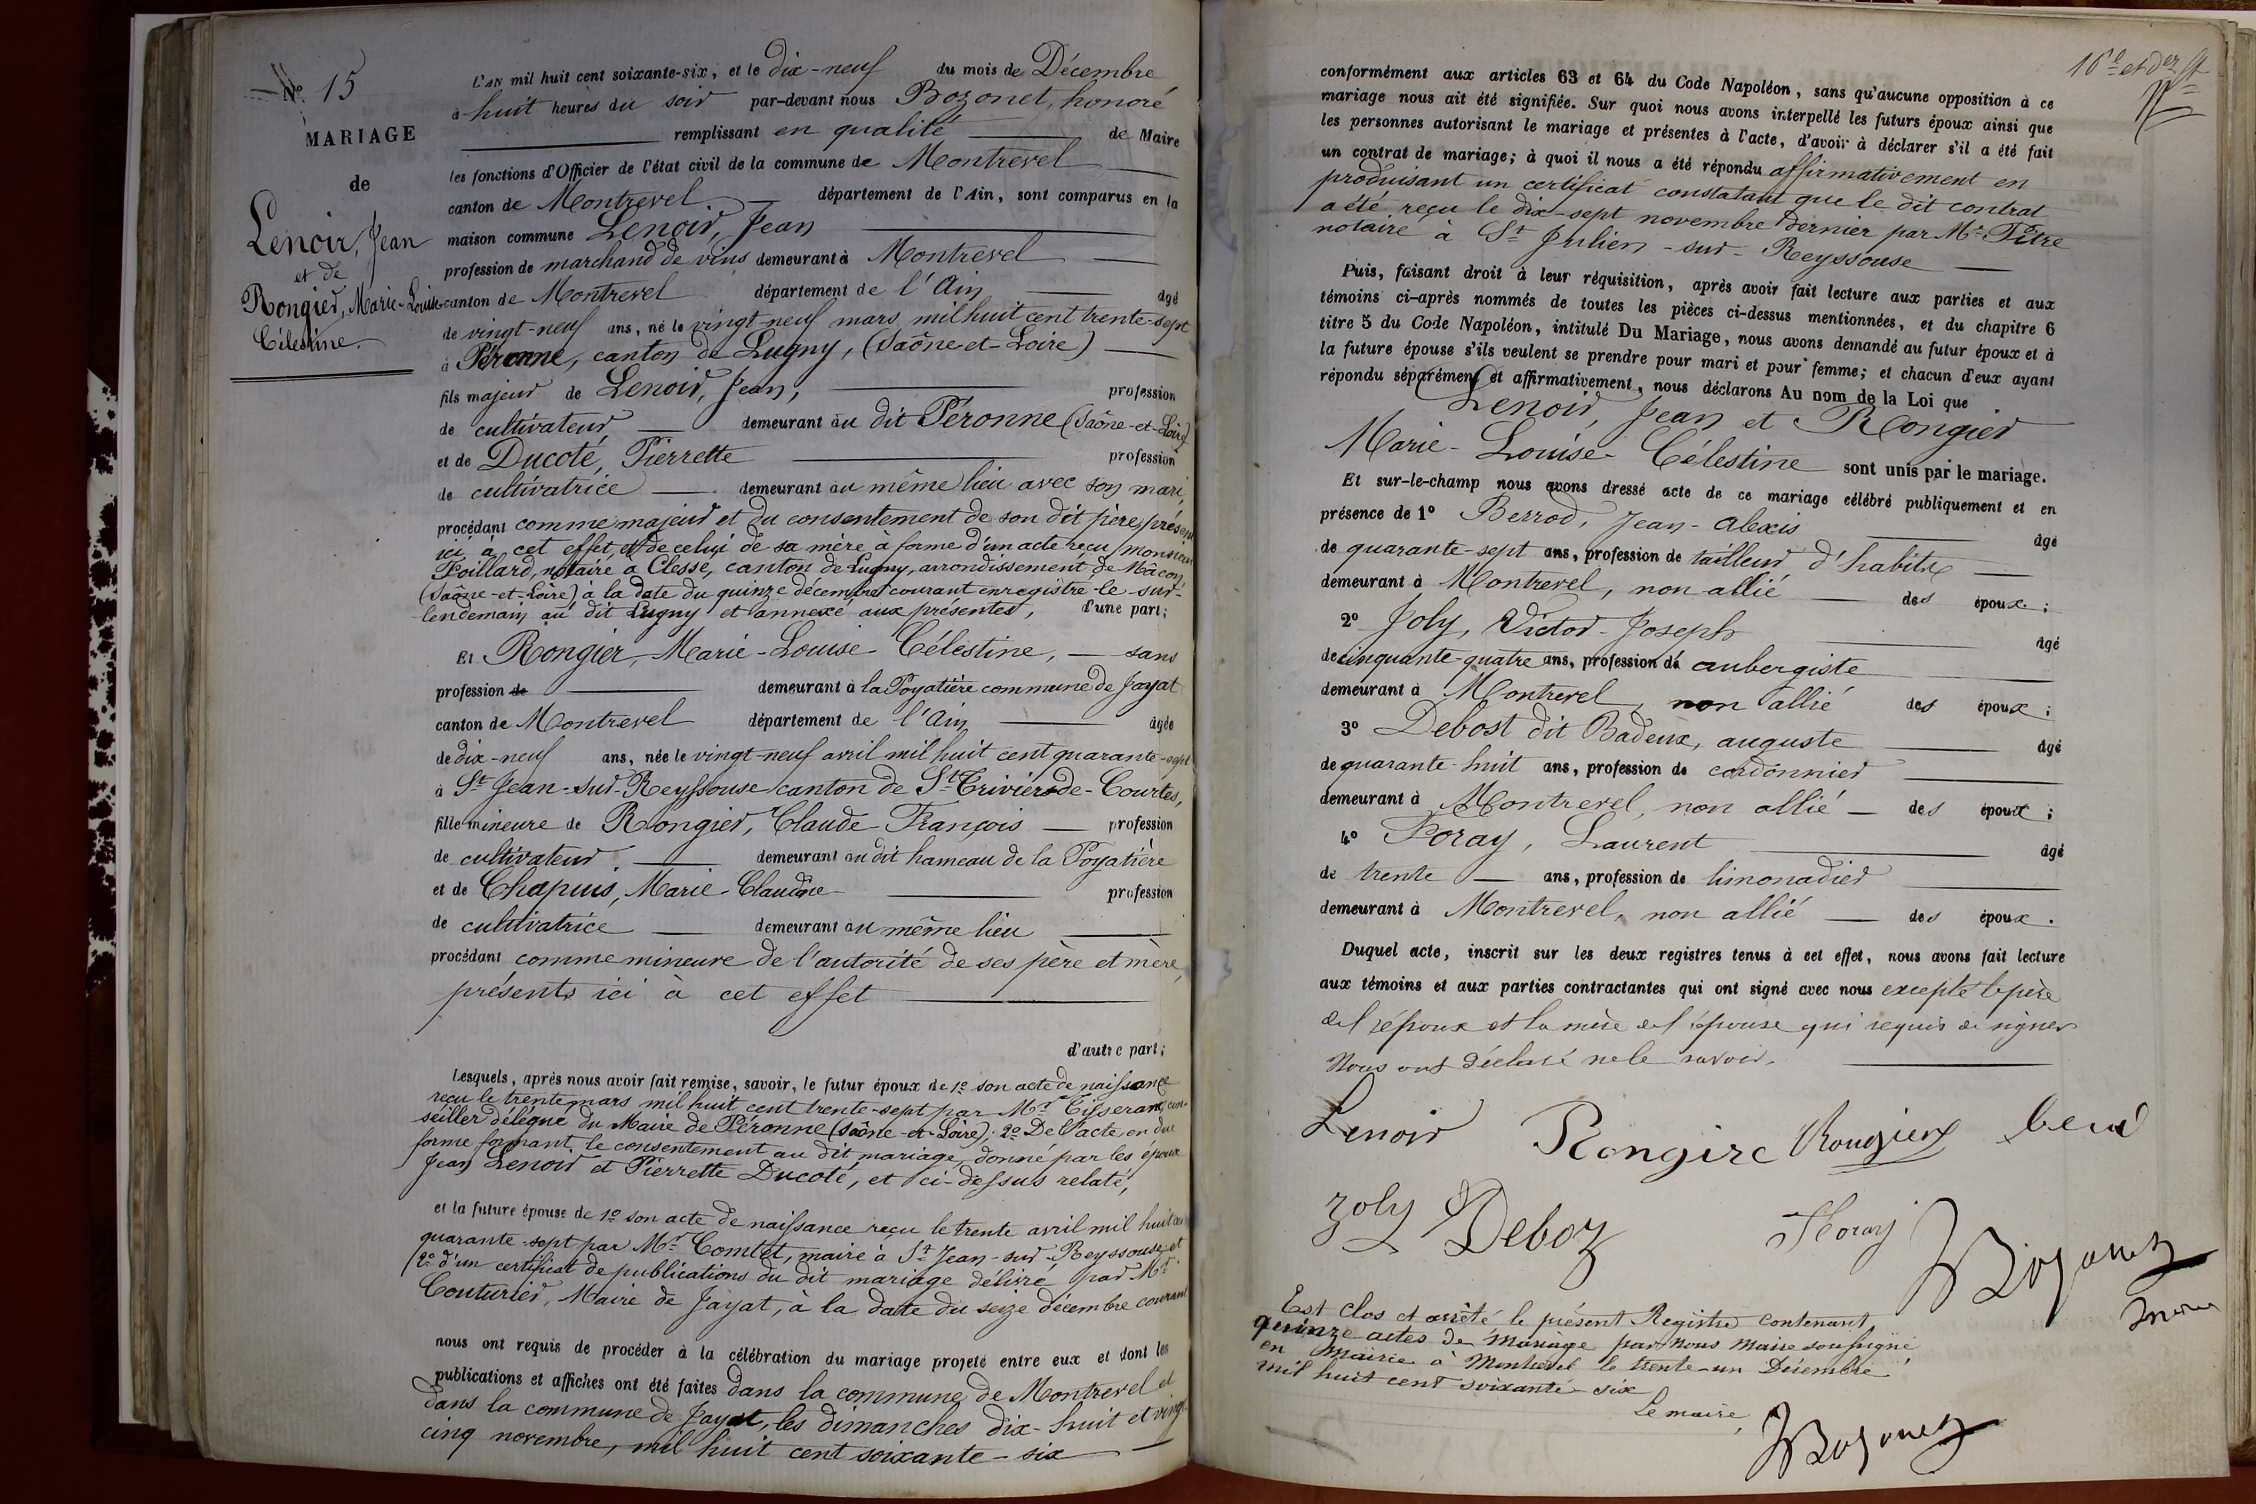 N° 15
MARIAGE
de
Lenoir, Jean
et de
Rongier, Marie-Louise-
Célestine.
L'AN mil huit cent soixante-six, et le dix-neuf du mois de Décembre
à huit heures du soir par-devant nous Bozonet, honoré
remplissant en qualité de Maire
les fonctions d'Officier de l'état civil de la commune de Montrevel
canton de Montrevel département de l'Ain, sont comparus en la
maison commune Lenoir, Jean
profession de marchand de vins demeurant à Montrevel
canton de Montrevel département de l'Ain âgé
de vingt-neuf ans, né le vingt-neuf mars mil huit cent trente-sept
à Péronne, canton de Lugny, (Saône-et-Loire)
fils majeur de Lenoir, Jean, profession
de cultivateur demeurant au dit Péronne (Saône-et-Loire)
et de Ducoté, Pierrette profession
de cultivatrice demeurant au même lieu avec son mari,
procédant comme majeur et du consentement de son dit père, présent
ici à cet effet, et de celui de sa mère à forme d'un acte reçu Monsieur
Poillard, notaire à Clessé, canton de Lugny, arrondissement de Mâcon,
(Saône-et-Loire) à la date du quinze décembre courant enregistré le sur-
lendemain au dit Lugny et annexé aux présentes, d'une part;
Et Rongier, Marie-Louise-Célestine, sans
profession de demeurant à la Poyatière commune de Jayat
canton de Montrevel département de l'Ain âgée
de dix-neuf ans, née le vingt-neuf avril mil huit cent quarante-sept
à St Jean-sur-Reyssouse canton de St Trivier-de-Courtes,
fille mineure de Rongier, Claude François profession
de cultivateur demeurant au dit hameau de la Poyatière
et de Chapuis, Marie-Claudine profession
de cultivatrice demeurant au même lieu
procédant comme mineure de l'autorité de ses père et mère,
présents ici à cet effet
d'autre part;
Lesquels, après nous avoir fait remise, savoir, le futur époux de 1° son acte de naissance
reçu le trente mars mil huit cent trente-sept par Mr Tisserand, con-
seiller délégué du Maire de Péronne (Saône-et-Loire); 2° De l'acte en due
forme formant le consentement au dit mariage, donné par les époux
Jean Lenoir et Pierrette Ducoté, et ci-dessus relaté,
et la future épouse de 1° son acte de naissance reçu le trente avril mil huit cent
quarante-sept par Mr Comtet, maire à St Jean-sur-Reyssouse; et
2° d'un certificat de publications du dit mariage délivré par Mr
Couturier, Maire de Jayat, à la date du seize décembre courant
nous ont requis de procéder à la célébration du mariage projeté entre eux et dont les
publications et affiches ont été faites dans la commune de Montrevel et
dans la commune de Jayat, les dimanches dix-huit et vingt
cinq novembre, mil huit cent soixante-six
16e et der ft
conformément aux articles 63 et 64 du Code Napoléon, sans qu'aucune opposition à ce
mariage nous ait été signifiée. Sur quoi nous avons interpellé les futurs époux ainsi que
les personnes autorisant le mariage et présentes à l'acte, d'avoir à déclarer s'il a été fait
un contrat de mariage; à quoi il nous a été répondu affirmativement en
produisant un certificat constatant que le dit contrat
a été reçu le dix-sept novembre dernier par Mr Pitre
notaire à St Julien-sur-Reyssouse
Puis, faisant droit à leur réquisition, après avoir fait lecture aux parties et aux
témoins ci-après nommés de toutes les pièces ci-dessus mentionnées, et du chapitre 6
titre 5 du Code Napoléon, intitulé Du Mariage, nous avons demandé au futur époux et à
la future épouse s'ils veulent se prendre pour mari et pour femme; et chacun d'eux ayant
répondu séparément et affirmativement, nous déclarons Au nom de la Loi que
Lenoir, Jean et Rongier
Marie-Louise-Célestine sont unis par le mariage.
Et sur-le-champ nous avons dressé acte de ce mariage célébré publiquement et en
présence de 1° Berrod, Jean-Alexis âgé
de quarante-sept ans, profession de tailleur d'habits
demeurant à Montrevel, non allié des époux;
2° Joly, Victor-Joseph âgé
de cinquante-quatre ans, profession d'aubergiste
demeurant à Montrevel, non allié des époux;
3° Debost dit Badeux, auguste âgé
de quarante-huit ans, profession de cordonnier
demeurant à Montrevel, non allié des époux;
4° Poray, Laurent âgé
de trente ans, profession de limonadier
demeurant à Montrevel, non allié des époux.
Duquel acte, inscrit sur les deux registres tenus à cet effet, nous avons fait lecture
aux témoins et aux parties contractantes qui ont signé avec nous excepté le père
de l'époux et la mère de l'épouse qui requis de signer
nous ont déclaré ne le savoir.
Lenoir Rongire Rongier
Joly Deboz Poray Bozonet
maire
Est clos et arrêté le présent Registre contenant
quinze actes de mariage par nous maire soussigné
en mairie à Montrevel le trente-un Décembre
mil huit cent soixante-six
Le maire,
Bozonet